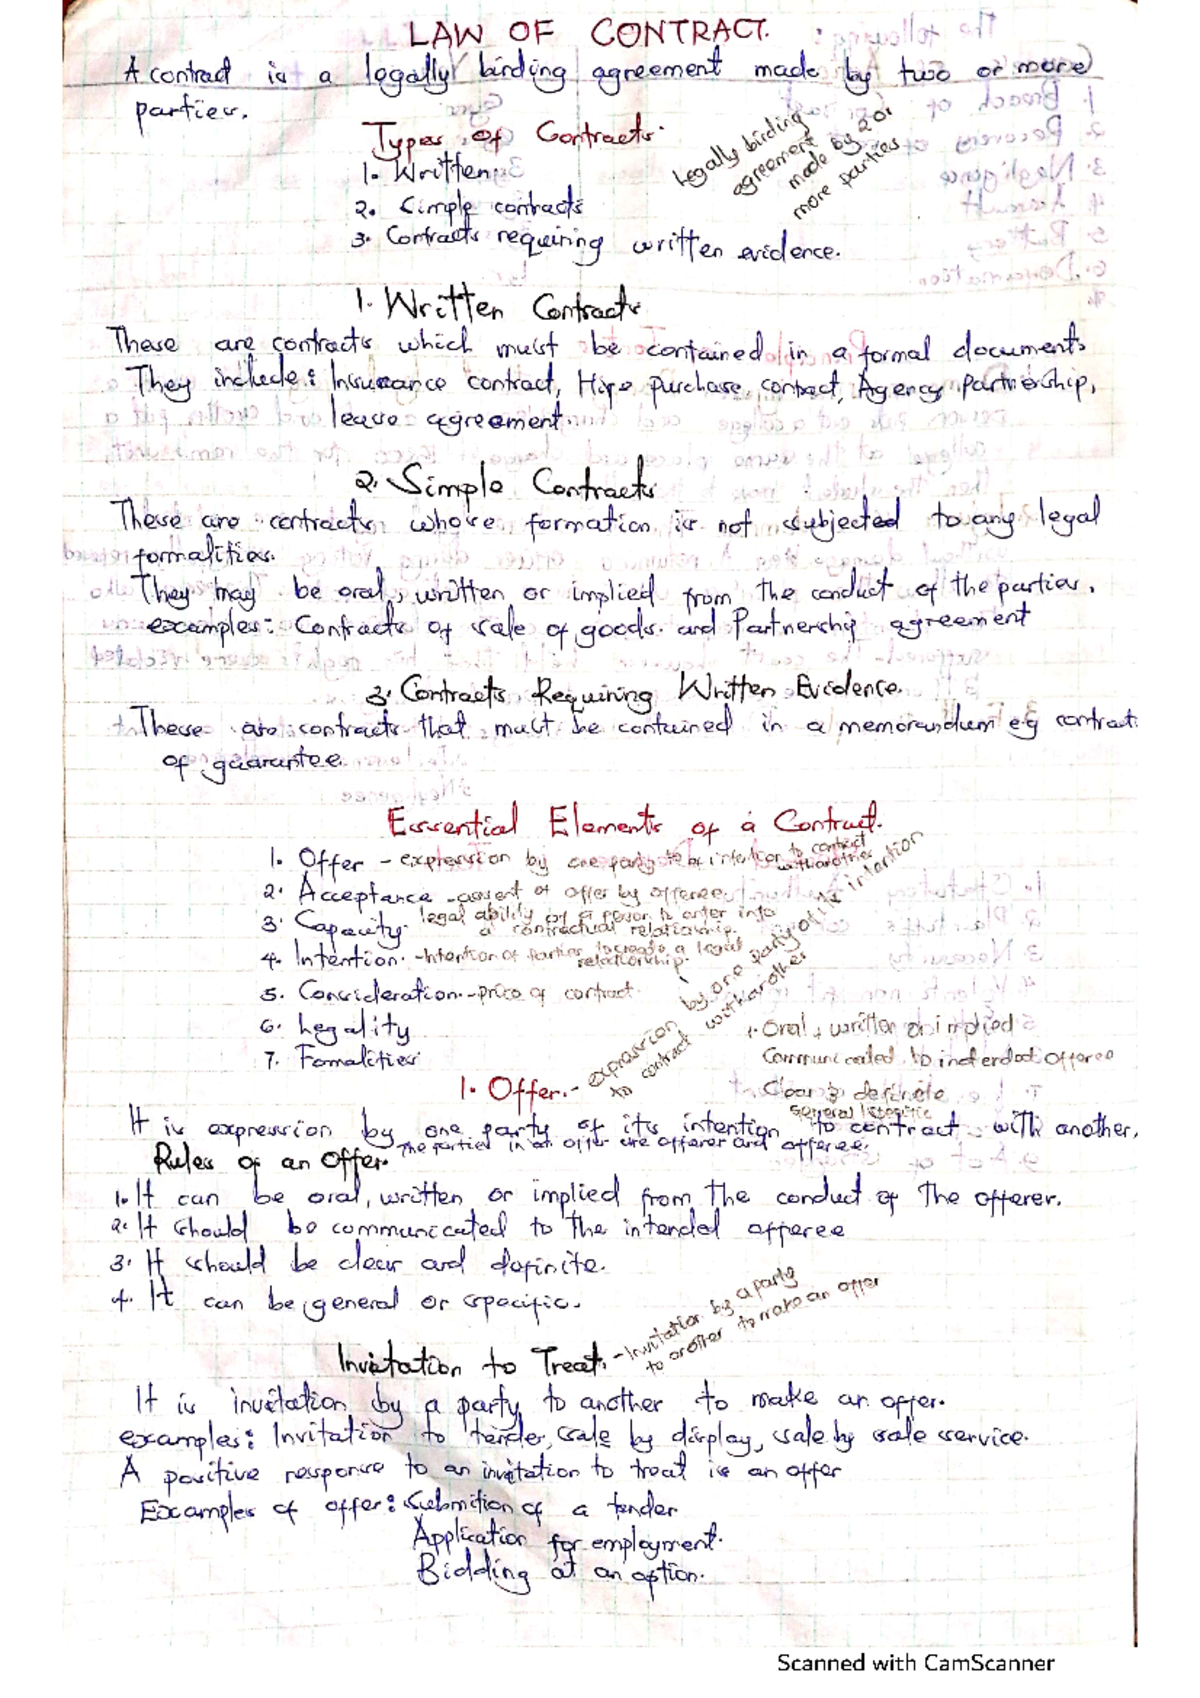 LAW OF CONTRACT.
A contract is a legally binding agreement made by two or more
parties.
Types of Contracts.
Legally binding
agreement
made by 2 or
more parties
1. Written
2. Simple contracts
3. Contracts requiring written evidence.
1. Written Contracts
These are contracts which must be contained in a formal document.
They include: Insurance contract, Hire purchase contract, Agency partnership,
lease agreement.
2. Simple Contracts
These are contracts whose formation is not subjected to any legal
formalities.
They may be oral, written or implied from the conduct of the parties.
examples: Contracts of sale of goods. and Partnership agreement
3. Contracts Requiring Written Evidence.
These are contracts that must be contained in a memorandum eg contract
of guarantee.
Essential Elements of a Contract.
1. Offer - expression by one party of intention to contract
with another
2. Acceptance - assent of offer by offeree.
3. Capacity. legal ability of a person to enter into
a contractual relationship.
4. Intention. - Intention of parties to create a legal
relationship.
5. Consideration. - price of contract
6. Legality
7. Fomalities
1. Offer. - expression by one party of its intention
to contract with another
1. Oral, written or implied
Communicated to intended offeree
Clear & definite
General / specific
It is expression by one party of its intention to contract with another.
The parties in an offer are offerer and offeree.
Rules of an Offer.
1. It can be oral, written or implied from the conduct of the offerer.
2. It should be communicated to the intended offeree
3. It should be clear and definite.
4. It can be general or specific.
Invitation to Treat. - Invitation by a party
to another to make an offer
It is invitation by a party to another to make an offer.
examples: Invitation to tender, sale by display, sale by sale service.
A positive response to an invitation to treat is an offer
Examples of offer: Submition of a tender
Application for employment.
Bidding at an option.
Scanned with CamScanner